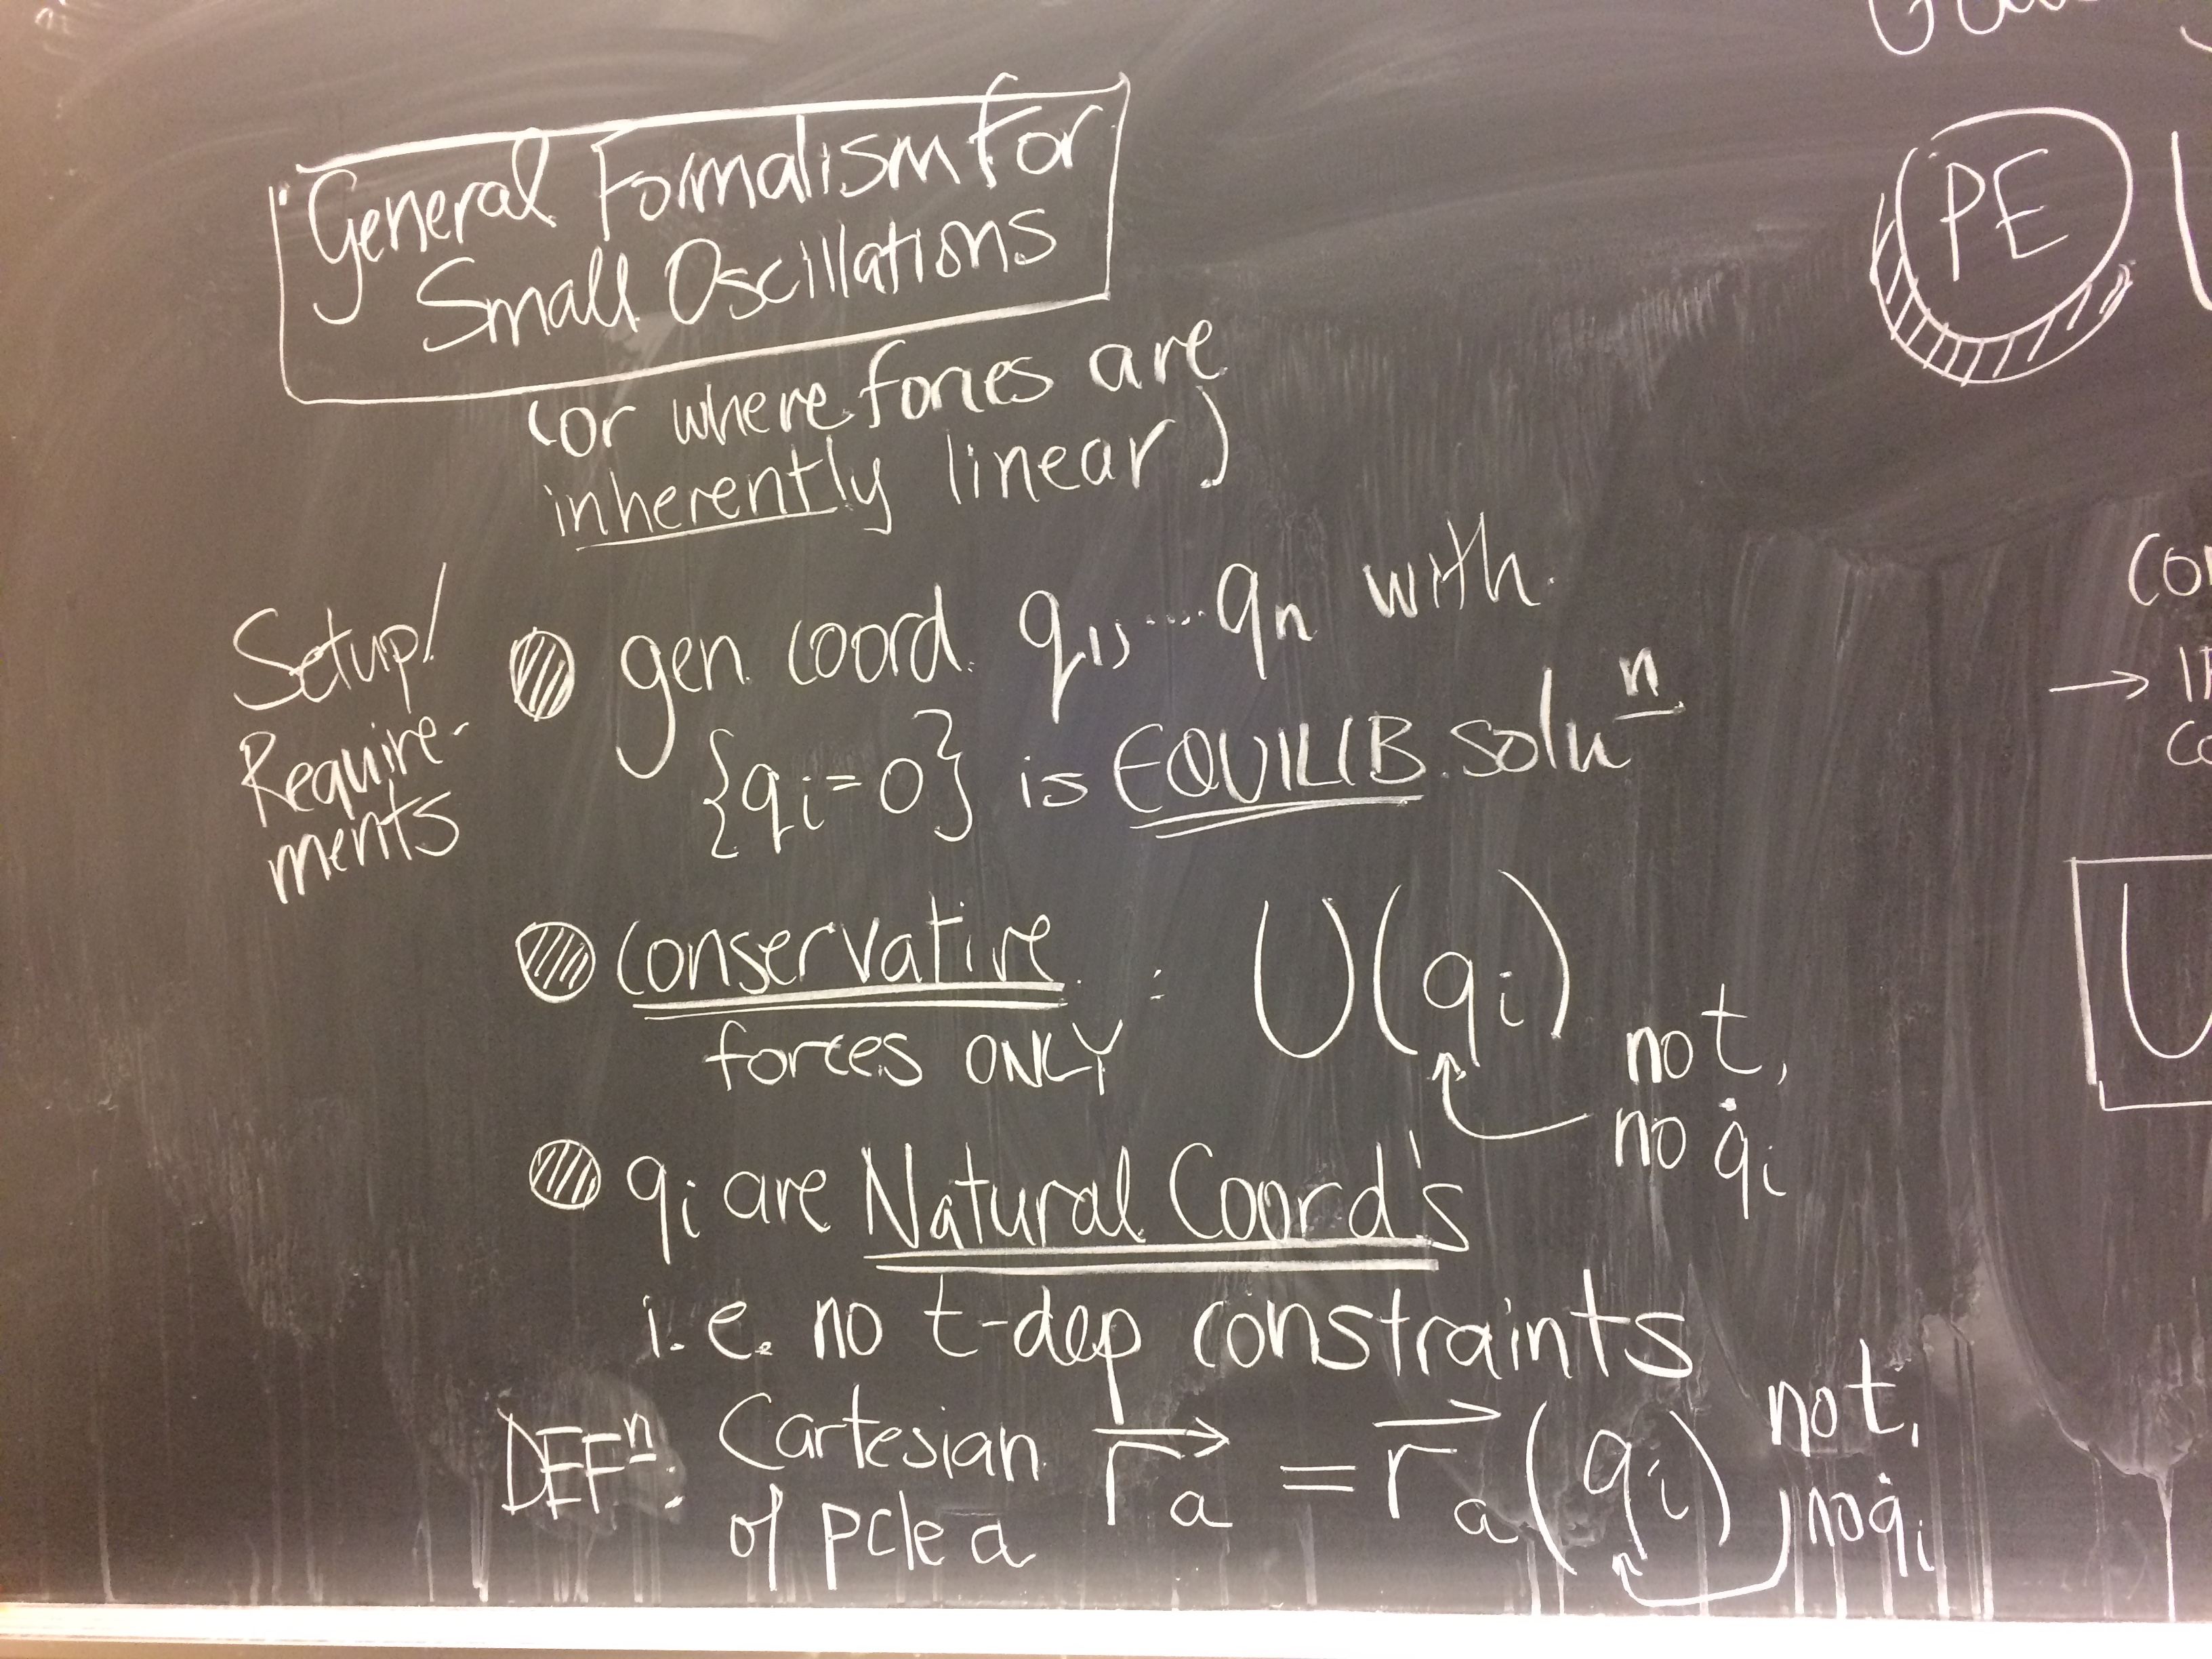 General Formalism For
Small Oscillations
(or where forces are
inherently linear)
Setup/
Require-
ments
gen. coord. q₁,...qₙ with
{qᵢ=0} is EQUILIB. soluⁿ
conservative : U(qᵢ)
forces ONLY
no t,
no q̇ᵢ
qᵢ are Natural Coord's
i.e. no t-dep constraints
DEFⁿ: Cartesian r⃗ₐ = r⃗ₐ(qᵢ) no t,
of pcle a no q̇ᵢ
PE
U